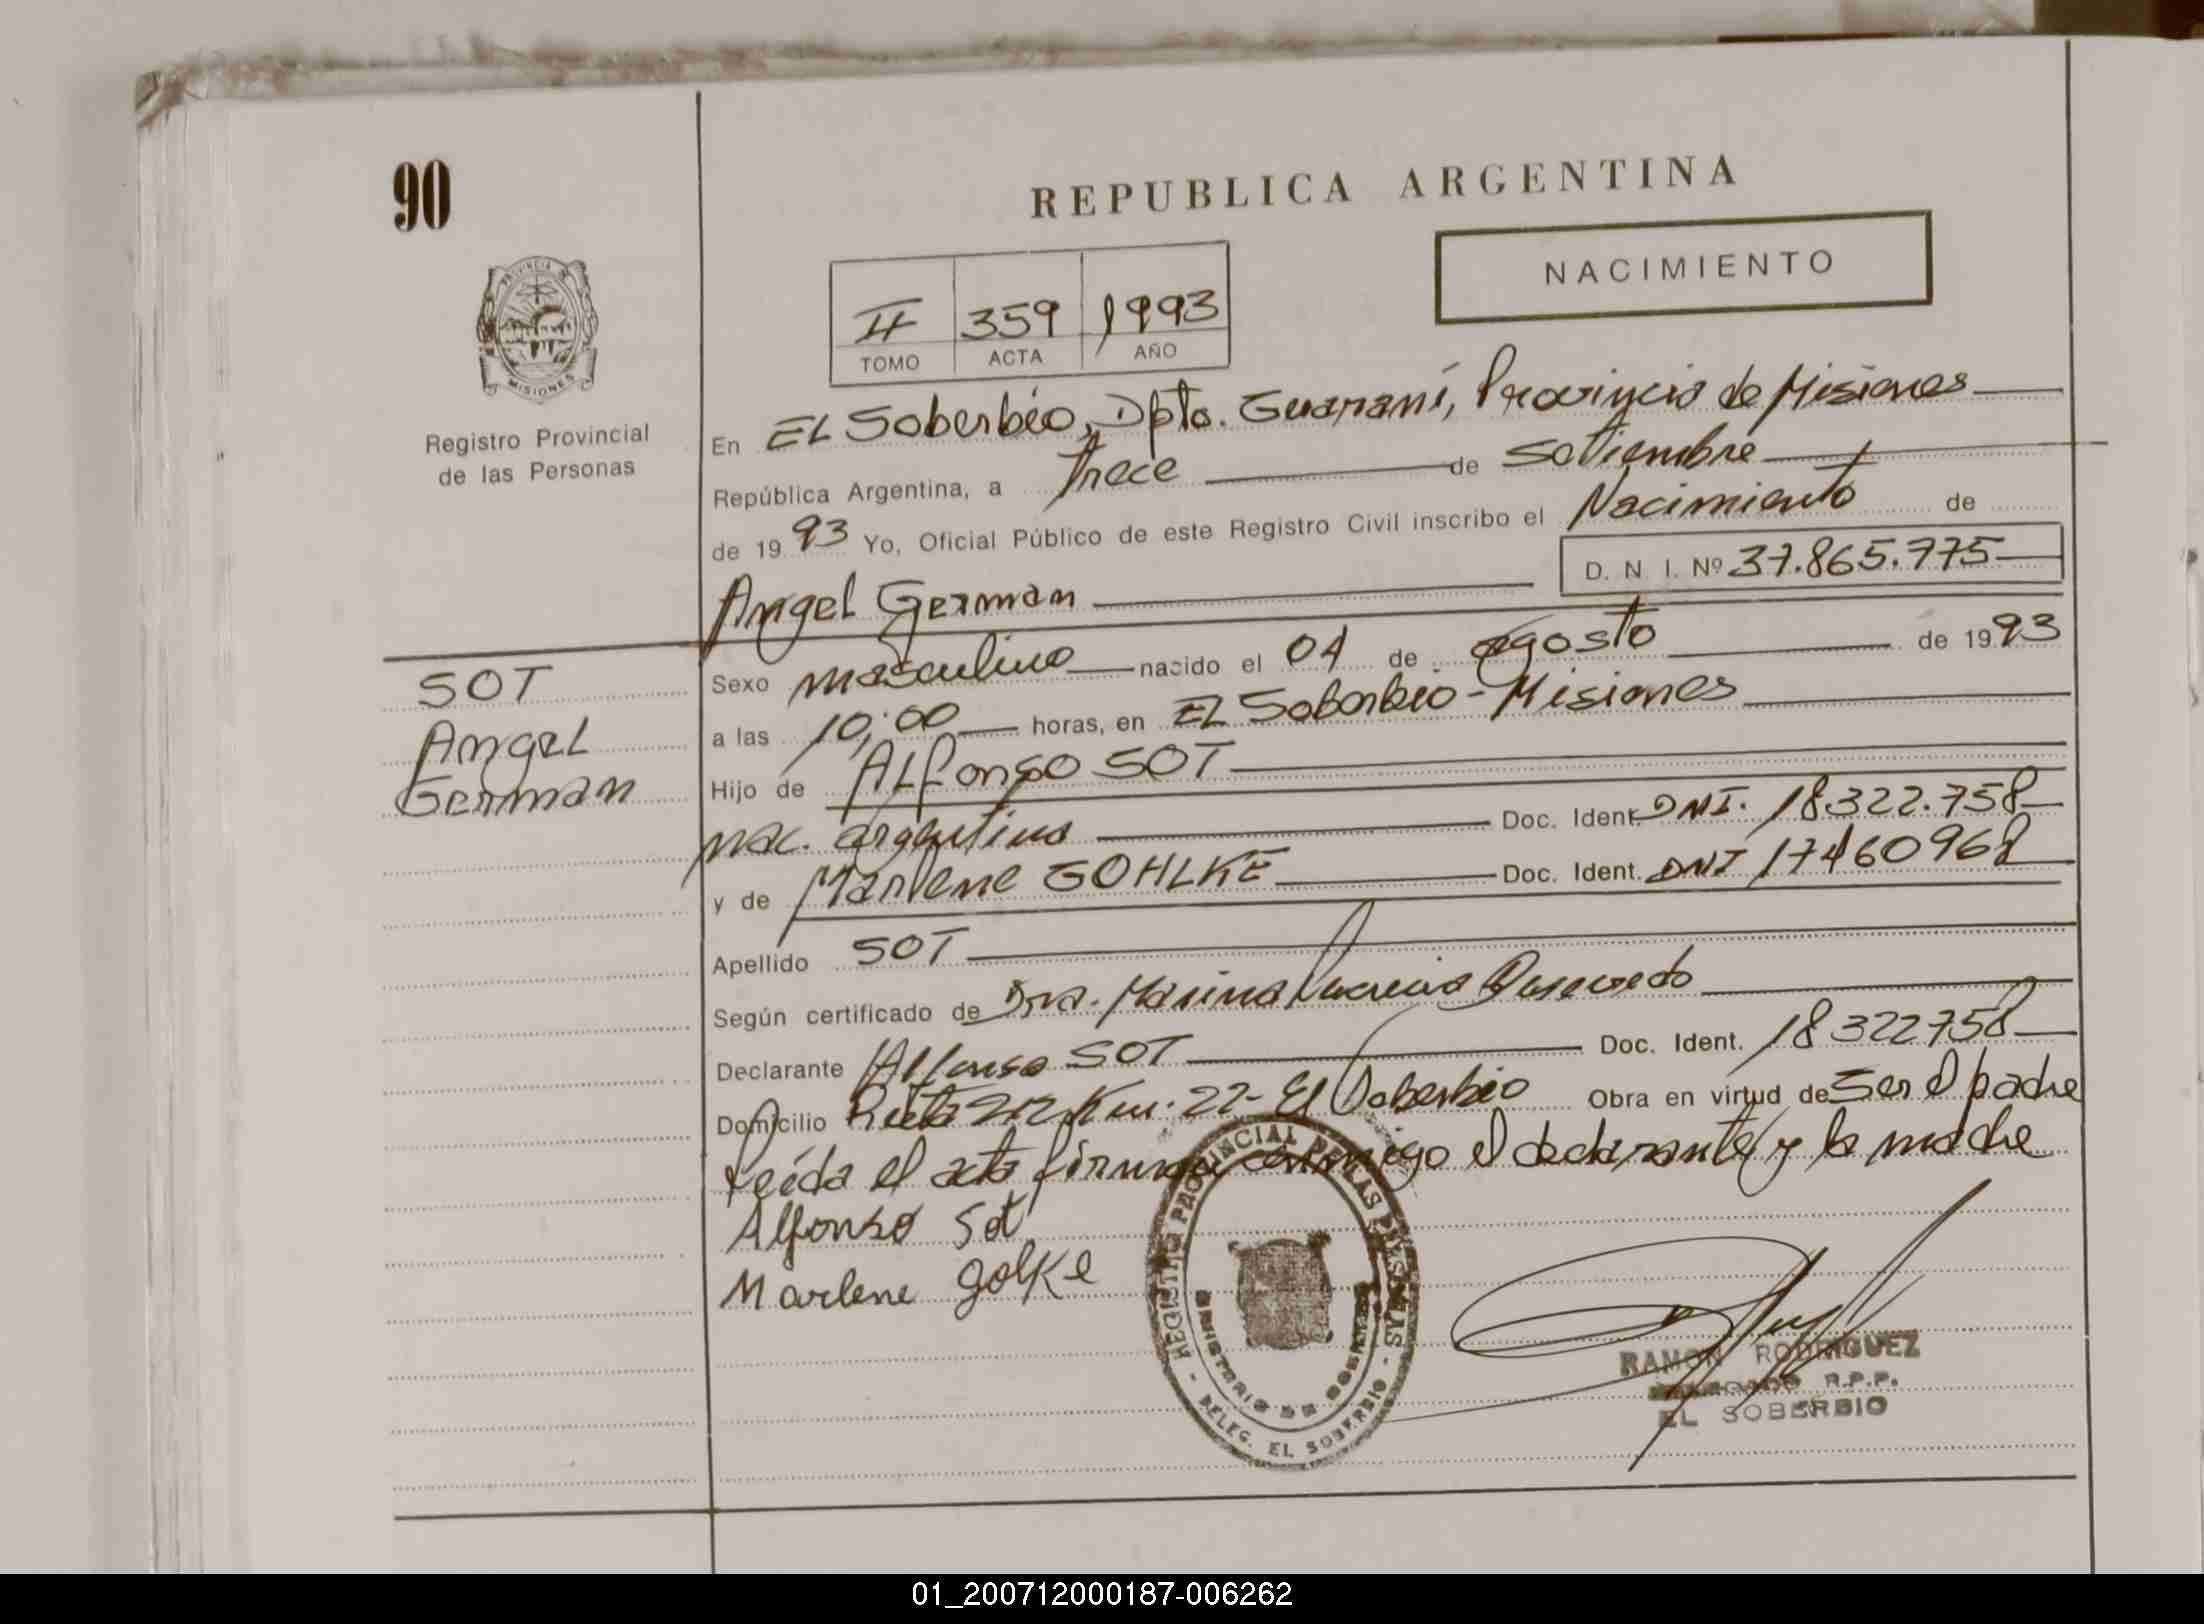 90
REPUBLICA ARGENTINA
NACIMIENTO
II 359 1993
TOMO ACTA AÑO
PROVINCIA DE
MISIONES
Registro Provincial
de las Personas
En EL Soberbio, Dpto. Guaraní, Provincia de Misiones
República Argentina, a trece de Setiembre
de 1993 Yo, Oficial Público de este Registro Civil inscribo el Nacimiento de
D. N. I. Nº 37.865.775
Angel German
SOT
Angel
German
Sexo masculino nacido el 04 de agosto de 1993
a las 10:00 horas, en EL Soberbio - Misiones
Hijo de ALfonso SOT
nac. argentina Doc. Ident. DNI. 18322.758
y de Marlene GOHLKE Doc. Ident. DNI 17460968
Apellido SOT
Según certificado de Dra. Marina
Declarante Alfonso SOT Doc. Ident. 18322758
Domicilio Ruta 212 Km. 22 - El Soberbio Obra en virtud de Ser el padre
Leída el acta firman conmigo el declarante y la madre
Alfonso Sot
Marlene golKe
REGISTRO PROVINCIAL DE LAS PERSONAS
MINISTERIO DE GOBIERNO
- DELEG. EL SOBERBIO -
RAMON RODRIGUEZ
DELEGADO R.P.P.
EL SOBERBIO
01_200712000187-006262